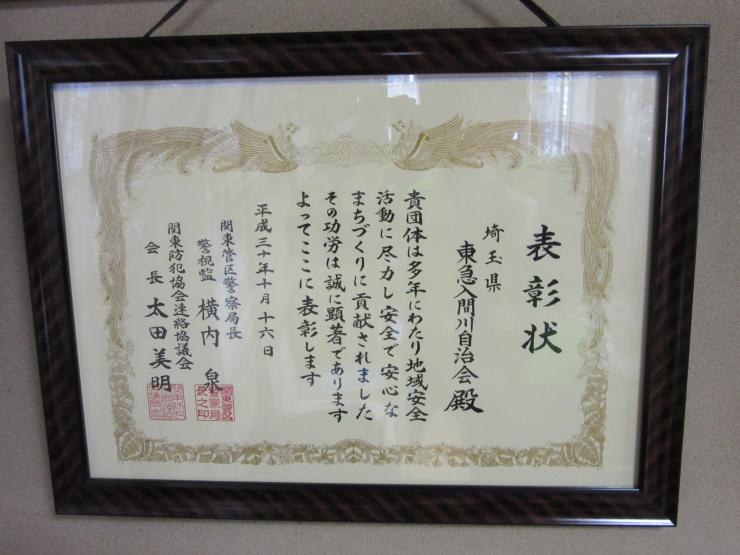 表彰状
埼玉県
東急入間川自治会殿
貴団体は多年にわたり地域安全
活動に尽力し安全で安心な
まちづくりに貢献されました
その功労は誠に顕著であります
よってここに表彰します
平成三十年十月十六日
関東管区警察局長
警視監 横内泉
関東管区警察局長之印
関東防犯協会連絡協議会
会長 太田美明